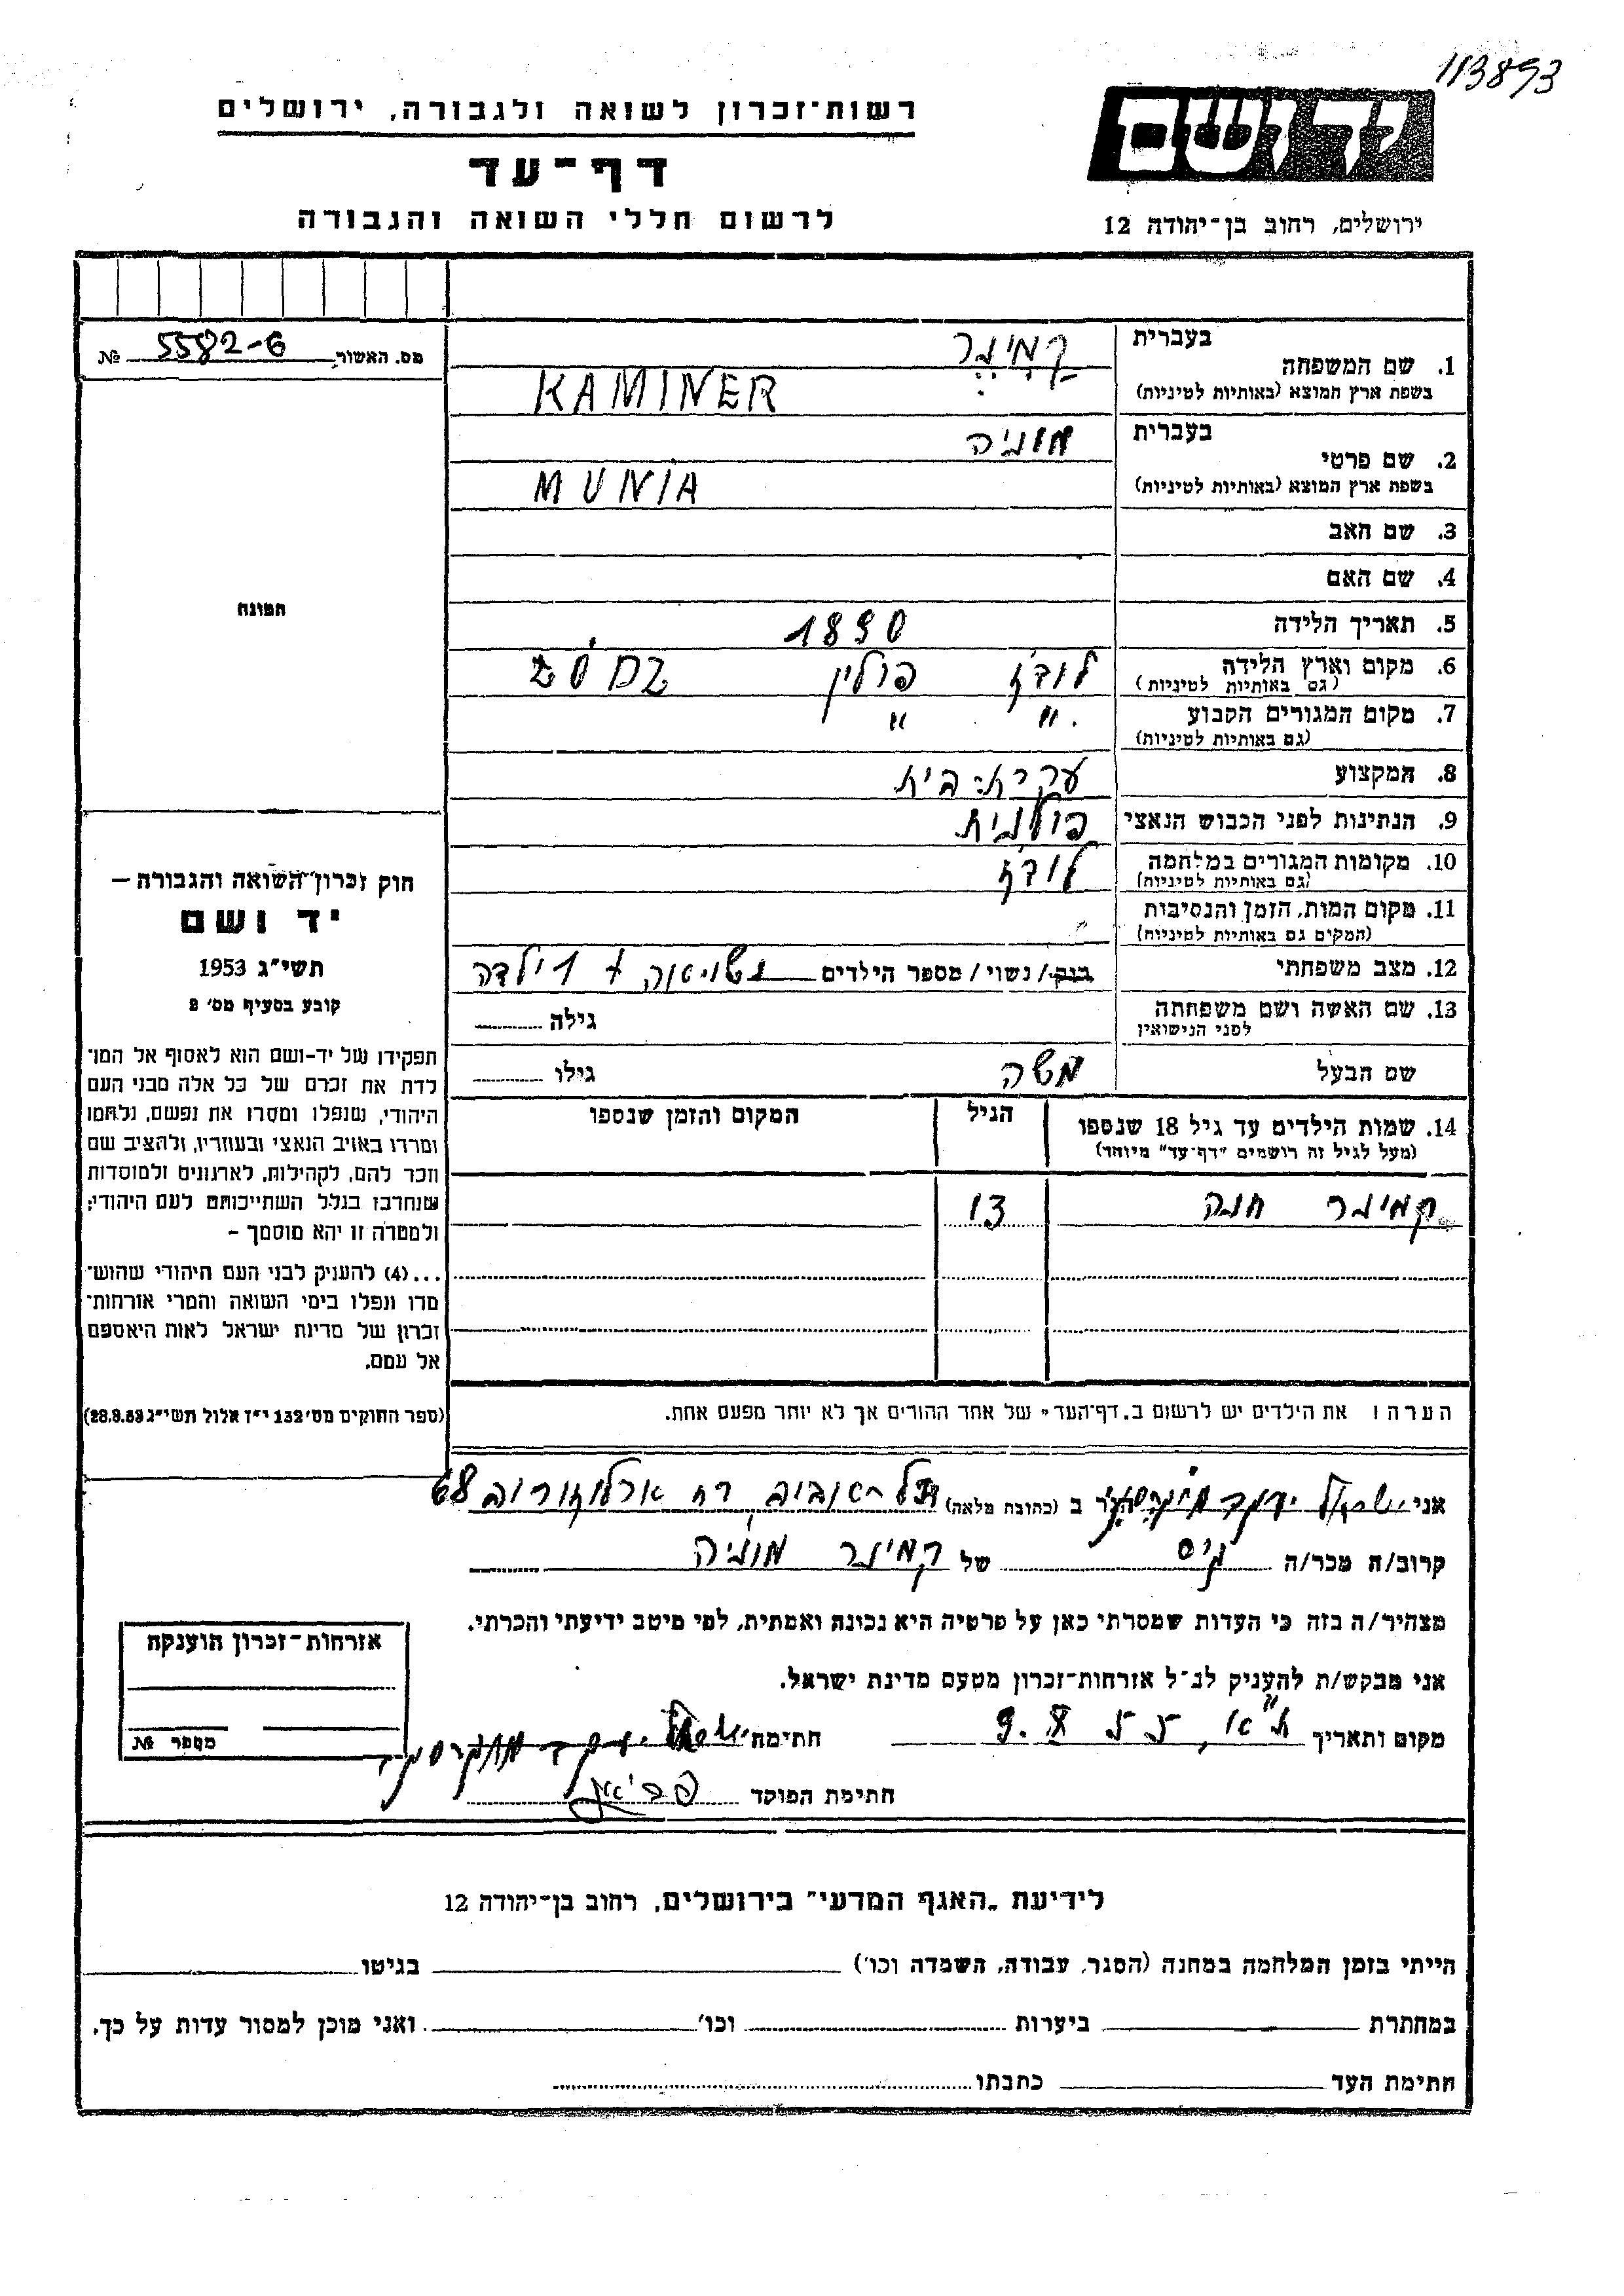 113893
יד ושם
רשות־זכרון לשואה ולגבורה, ירושלים
דף־עד
לרשום חללי השואה והגבורה
ירושלים, רחוב בן־יהודה 12
מס. האשור 5582-6 №
בעברית קמינר
1. שם המשפחה
בשפת ארץ המוצא (באותיות לטיניות) KAMINER
בעברית מוניה
2. שם פרטי
בשפת ארץ המוצא (באותיות לטיניות) MUNIA
3. שם האב
4. שם האם
5. תאריך הלידה 1890
6. מקום וארץ הלידה לודז' פולין ŁÓDZ
(גם באותיות לטיניות)
7. מקום המגורים הקבוע " "
(גם באותיות לטיניות)
8. המקצוע עקרת בית
9. הנתינות לפני הכבוש הנאצי פולנית
10. מקומות המגורים במלחמה לודז'
(גם באותיות לטיניות)
11. מקום המות, הזמן והנסיבות
(המקום גם באותיות לטיניות)
12. מצב משפחתי רווק / נשוי / מספר הילדים נשואה + 1 ילדה
13. שם האשה ושם משפחתה גילה
לפני הנישואין
שם הבעל משה גילו
14. שמות הילדים עד גיל 18 שנספו הגיל המקום והזמן שנספו
(מעל לגיל זה רושמים "דף־עד" מיוחד)
קמינר חנה 13
הערה: את הילדים יש לרשום ב„דף־העד" של אחד ההורים אך לא יותר מפעם אחת.
התמונה
חוק זכרון השואה והגבורה —
יד ושם
תשי"ג 1953
קובע בסעיף מס' 2
תפקידו של יד-ושם הוא לאסוף אל המו־
לדת את זכרם של כל אלה מבני העם
היהודי, שנפלו ומסרו את נפשם, נלחמו
ומרדו באויב הנאצי ובעוזריו, ולהציב שם
וזכר להם, לקהילות, לארגונים ולמוסדות
שנחרבו בגלל השתייכותם לעם היהודי;
ולמטרה זו יהא מוסמך –
...(4) להעניק לבני העם היהודי שהוש־
מדו ונפלו בימי השואה והמרי אזרחות־
זכרון של מדינת ישראל לאות היאספם
אל עמם.
(ספר החוקים מס' 132 י"ז אלול תשי"ג 28.8.53)
אני ישראל יעקב הגר ב (כתובת מלאה) תל-אביב רח' ארלוזורוב 68
קרוב/ה מכר/ה גיס של קמינר מוניה
מצהיר/ה בזה כי העדות שמסרתי כאן על פרטיה היא נכונה ואמתית, לפי מיטב ידיעתי והכרתי.
אני מבקש/ת להעניק לנ"ל אזרחות־זכרון מטעם מדינת ישראל.
מקום ותאריך ת"א, 9.X 55 חתימה ישראל יעקב
חתימת הפוקד
אזרחות־זכרון הוענקה
מספר №
לידיעת „האגף המדעי" בירושלים, רחוב בן־יהודה 12
הייתי בזמן המלחמה במחנה (הסגר, עבודה, השמדה וכו') בגיטו
במחתרת ביערות וכו' ואני מוכן למסור עדות על כך.
חתימת העד כתבתו